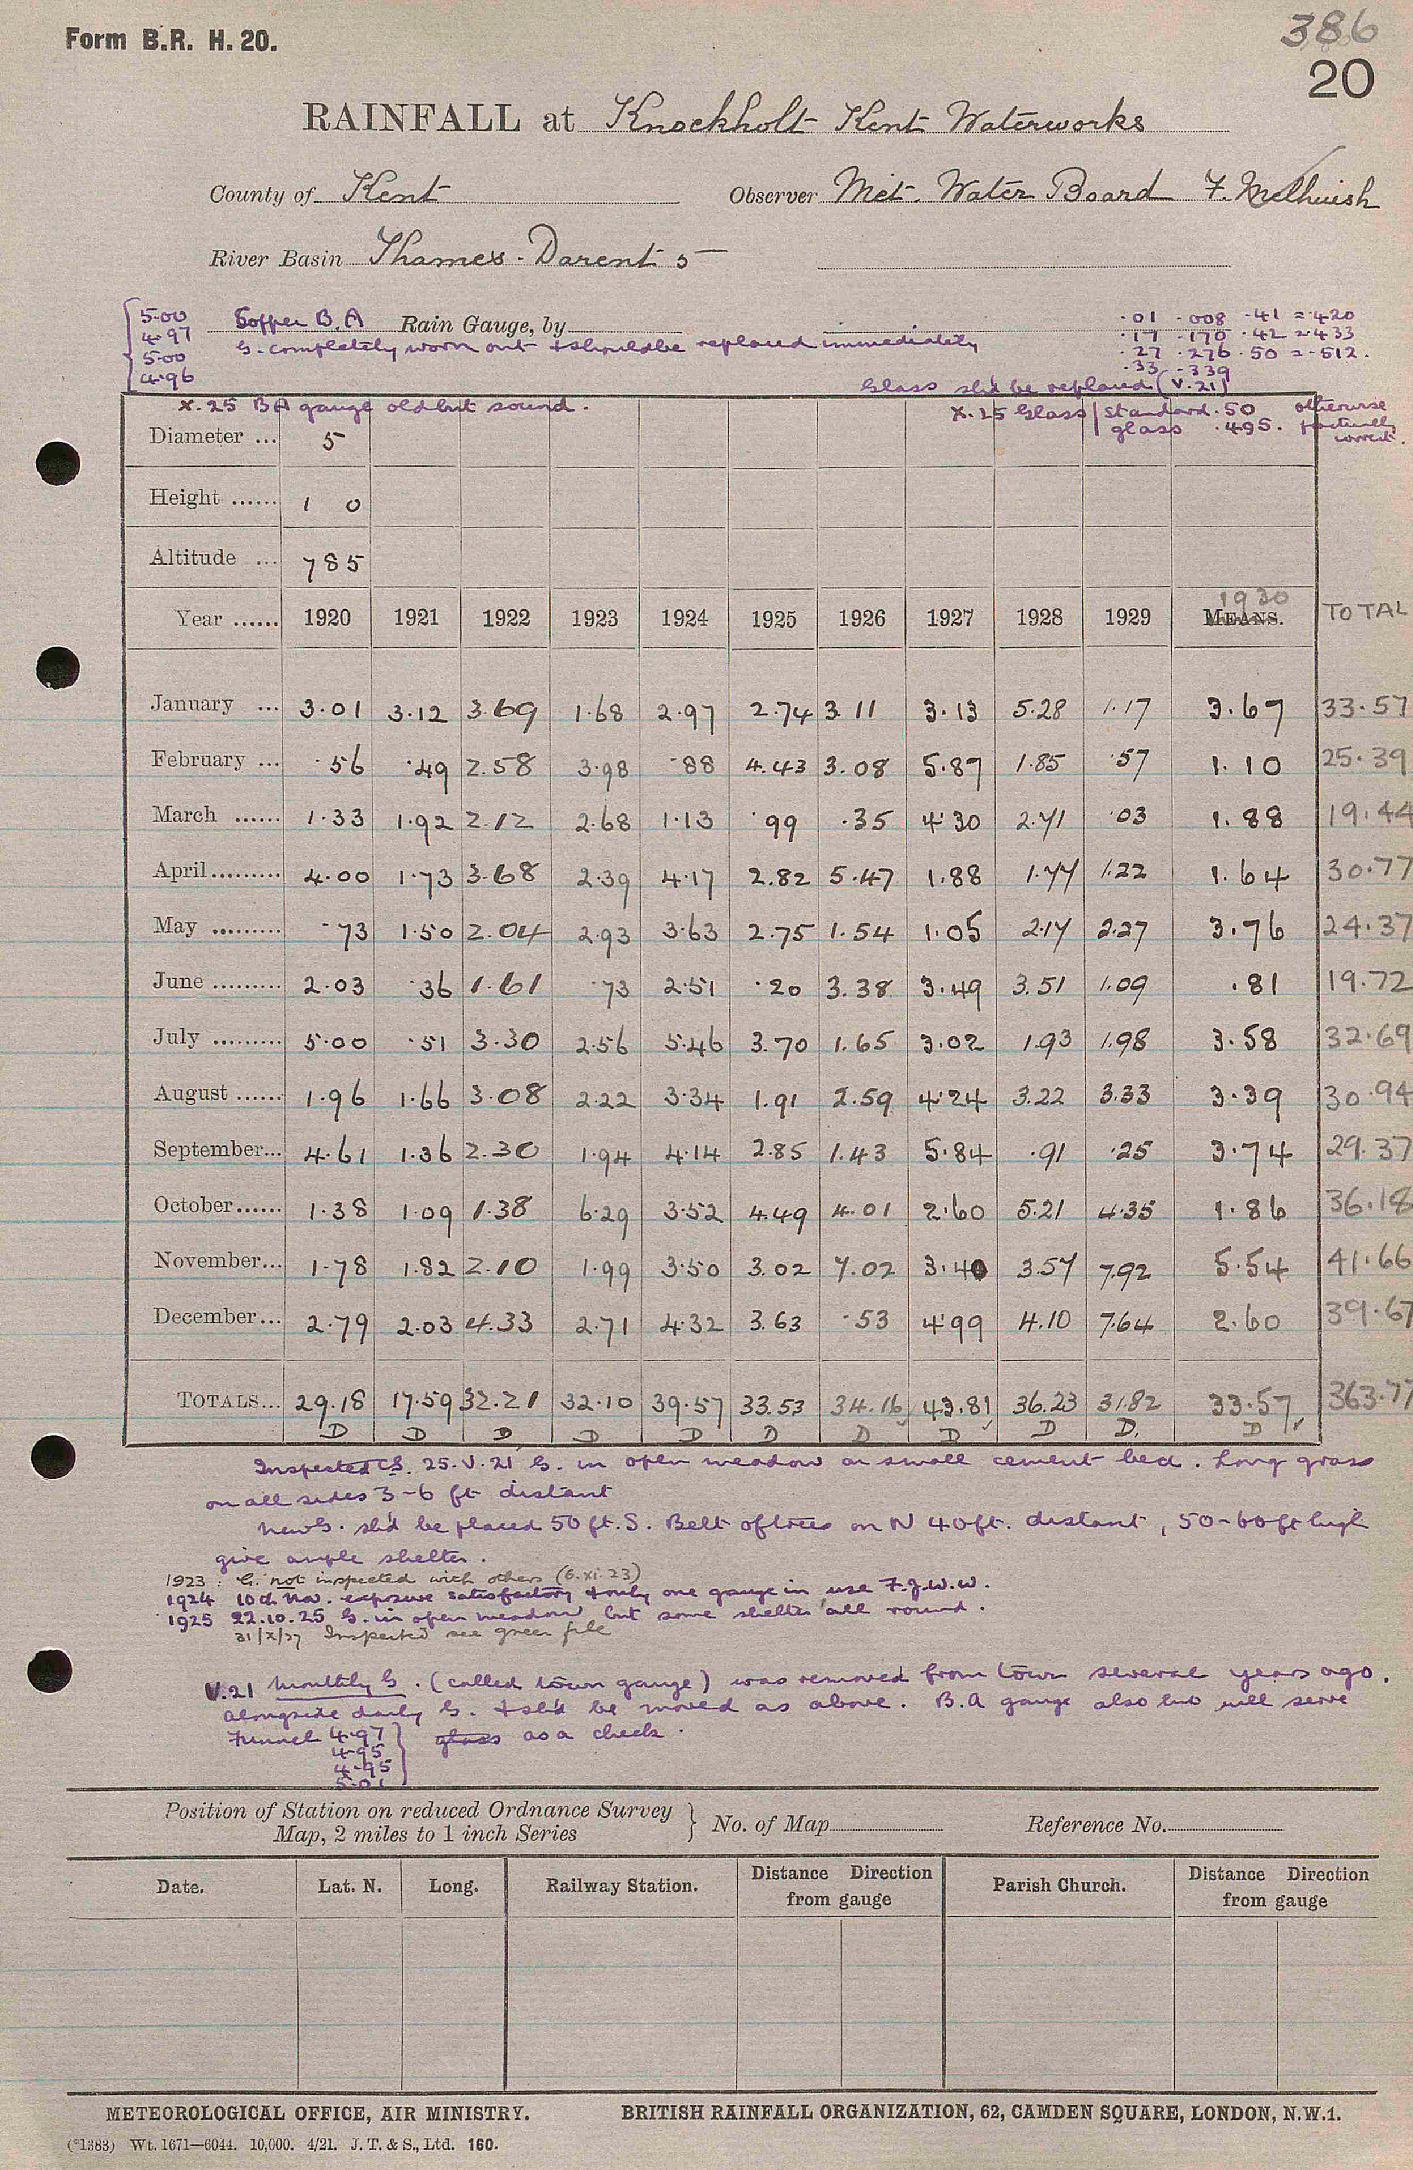 Form B.R. H. 20.
386
20
RAINFALL at Knockholt Kent Waterworks
County of Kent Observer Met. Water Board F. Melhuish
River Basin Thames - Darent 5
5.00 Copper B.A Rain Gauge, by .01 .008 .41 = .420
4.97 G. completely worn out & should be replaced immediately .17 .170 .42 = .433
5.00 .27 .276 .50 = .512.
4.96 .33 .339
Glass sh'd be replaced (V.21)
X.25 BA gauge old but sound. X.25 Glass standard .50 otherwise
glass .495. practically correct.
Diameter ... 5
Height ...... 1 0
Altitude ... 785
Year ...... 1920 1921 1922 1923 1924 1925 1926 1927 1928 1929 MEANS. 1930 TOTAL
January ... 3.01 3.12 3.69 1.68 2.97 2.74 3.11 3.13 5.28 1.17 3.67 33.57
February ... .56 .49 2.58 3.98 .88 4.43 3.08 5.87 1.85 .57 1.10 25.39
March ...... 1.33 1.92 2.12 2.68 1.13 .99 .35 4.30 2.71 .03 1.88 19.44
April ......... 4.00 1.73 3.68 2.39 4.17 2.82 5.47 1.88 1.77 1.22 1.64 30.77
May ......... .73 1.50 2.04 2.93 3.63 2.75 1.54 1.05 2.17 2.27 3.76 24.37
June ......... 2.03 .36 1.61 .73 2.51 .20 3.38 3.49 3.51 1.09 .81 19.72
July ......... 5.00 .51 3.30 2.56 5.46 3.70 1.65 3.02 1.93 1.98 3.58 32.69
August ...... 1.96 1.66 3.08 2.22 3.34 1.91 2.59 4.24 3.22 3.33 3.39 30.94
September... 4.61 1.36 2.30 1.94 4.14 2.85 1.43 5.84 .91 .25 3.74 29.37
October...... 1.38 1.09 1.38 6.29 3.52 4.49 4.01 2.60 5.21 4.35 1.86 36.18
November... 1.78 1.82 2.10 1.99 3.50 3.02 7.02 3.40 3.57 7.92 5.54 41.66
December... 2.79 2.03 4.33 2.71 4.32 3.63 .53 4.99 4.10 7.64 2.60 39.67
TOTALS... 29.18 17.59 32.21 32.10 39.57 33.53 34.16 43.81 36.23 31.82 33.57 363.77
D D D D D D D D D D. D
Inspected CS. 25.V.21 G. in open meadow on small cement bed. Long grass
on all sides 3-6 ft distant
New G. sh'd be placed 50 ft. S. Belt of trees on N 40 ft. distant, 50-60 ft high
give ample shelter.
1923 : G. not inspected with others (6.xi.23)
1924 10th Nov. exposure satisfactory & only one gauge in use F.J.W.W.
1925 22.10.25 G. in open meadow but some shelter all round.
31/X/27 Inspected see green file
V.21 Monthly G. (called town gauge) was removed from town several years ago.
alongside daily G. & sh'd be moved as above. B.A gauge also two will serve
Funnel 4.97 glass as a check.
4.95
4.95
5.01
Position of Station on reduced Ordnance Survey
Map, 2 miles to 1 inch Series } No. of Map Reference No.
Date. Lat. N. Long. Railway Station. Distance Direction from gauge Parish Church. Distance Direction from gauge
METEOROLOGICAL OFFICE, AIR MINISTRY. BRITISH RAINFALL ORGANIZATION, 62, CAMDEN SQUARE, LONDON, N.W.1.
(*1383) Wt. 1671—6044. 10,000. 4/21. J. T. & S., Ltd. 160.